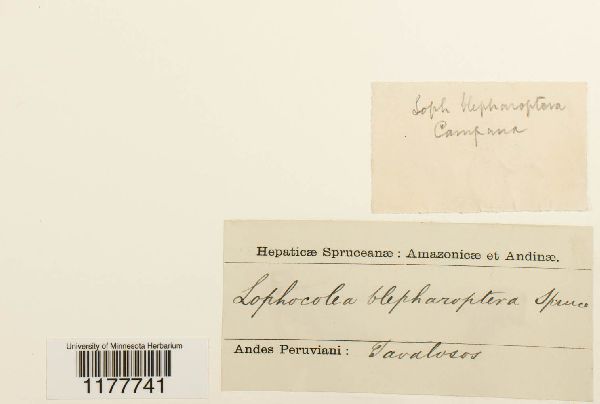 Loph blepharoptera
Campana
Hepaticæ Spruceanæ: Amazonicæ et Andinæ.
Lophocolea blepharoptera Spruce
Andes Peruviani: Tavalosos
University of Minnesota Herbarium
1177741